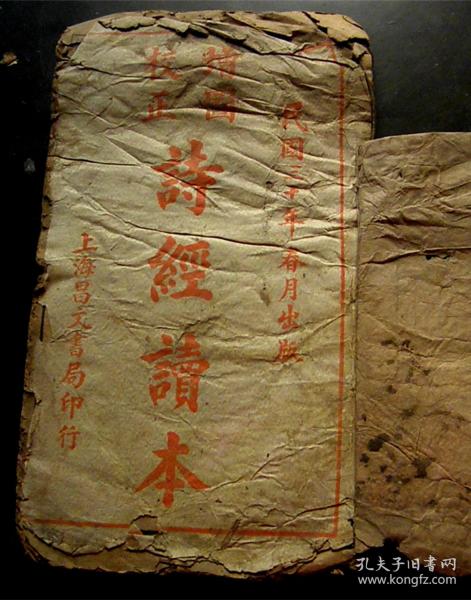 民國三十年春月出版
繪圖
校正
詩經讀本
上海昌文書局印行
孔夫子旧书网
www.kongfz.com